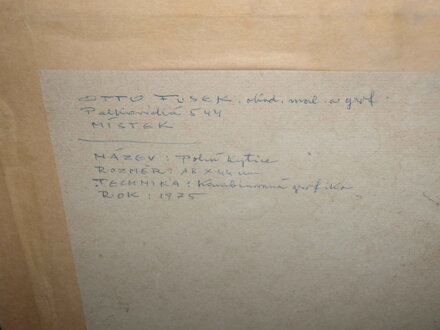 OTTO FUSEK, akad. mal. a graf.
544
MÍSTEK
NÁZEV: Polní kytice
ROZMĚR: 18 x 44 cm
TECHNIKA: Kombinovaná grafika
ROK: 1975